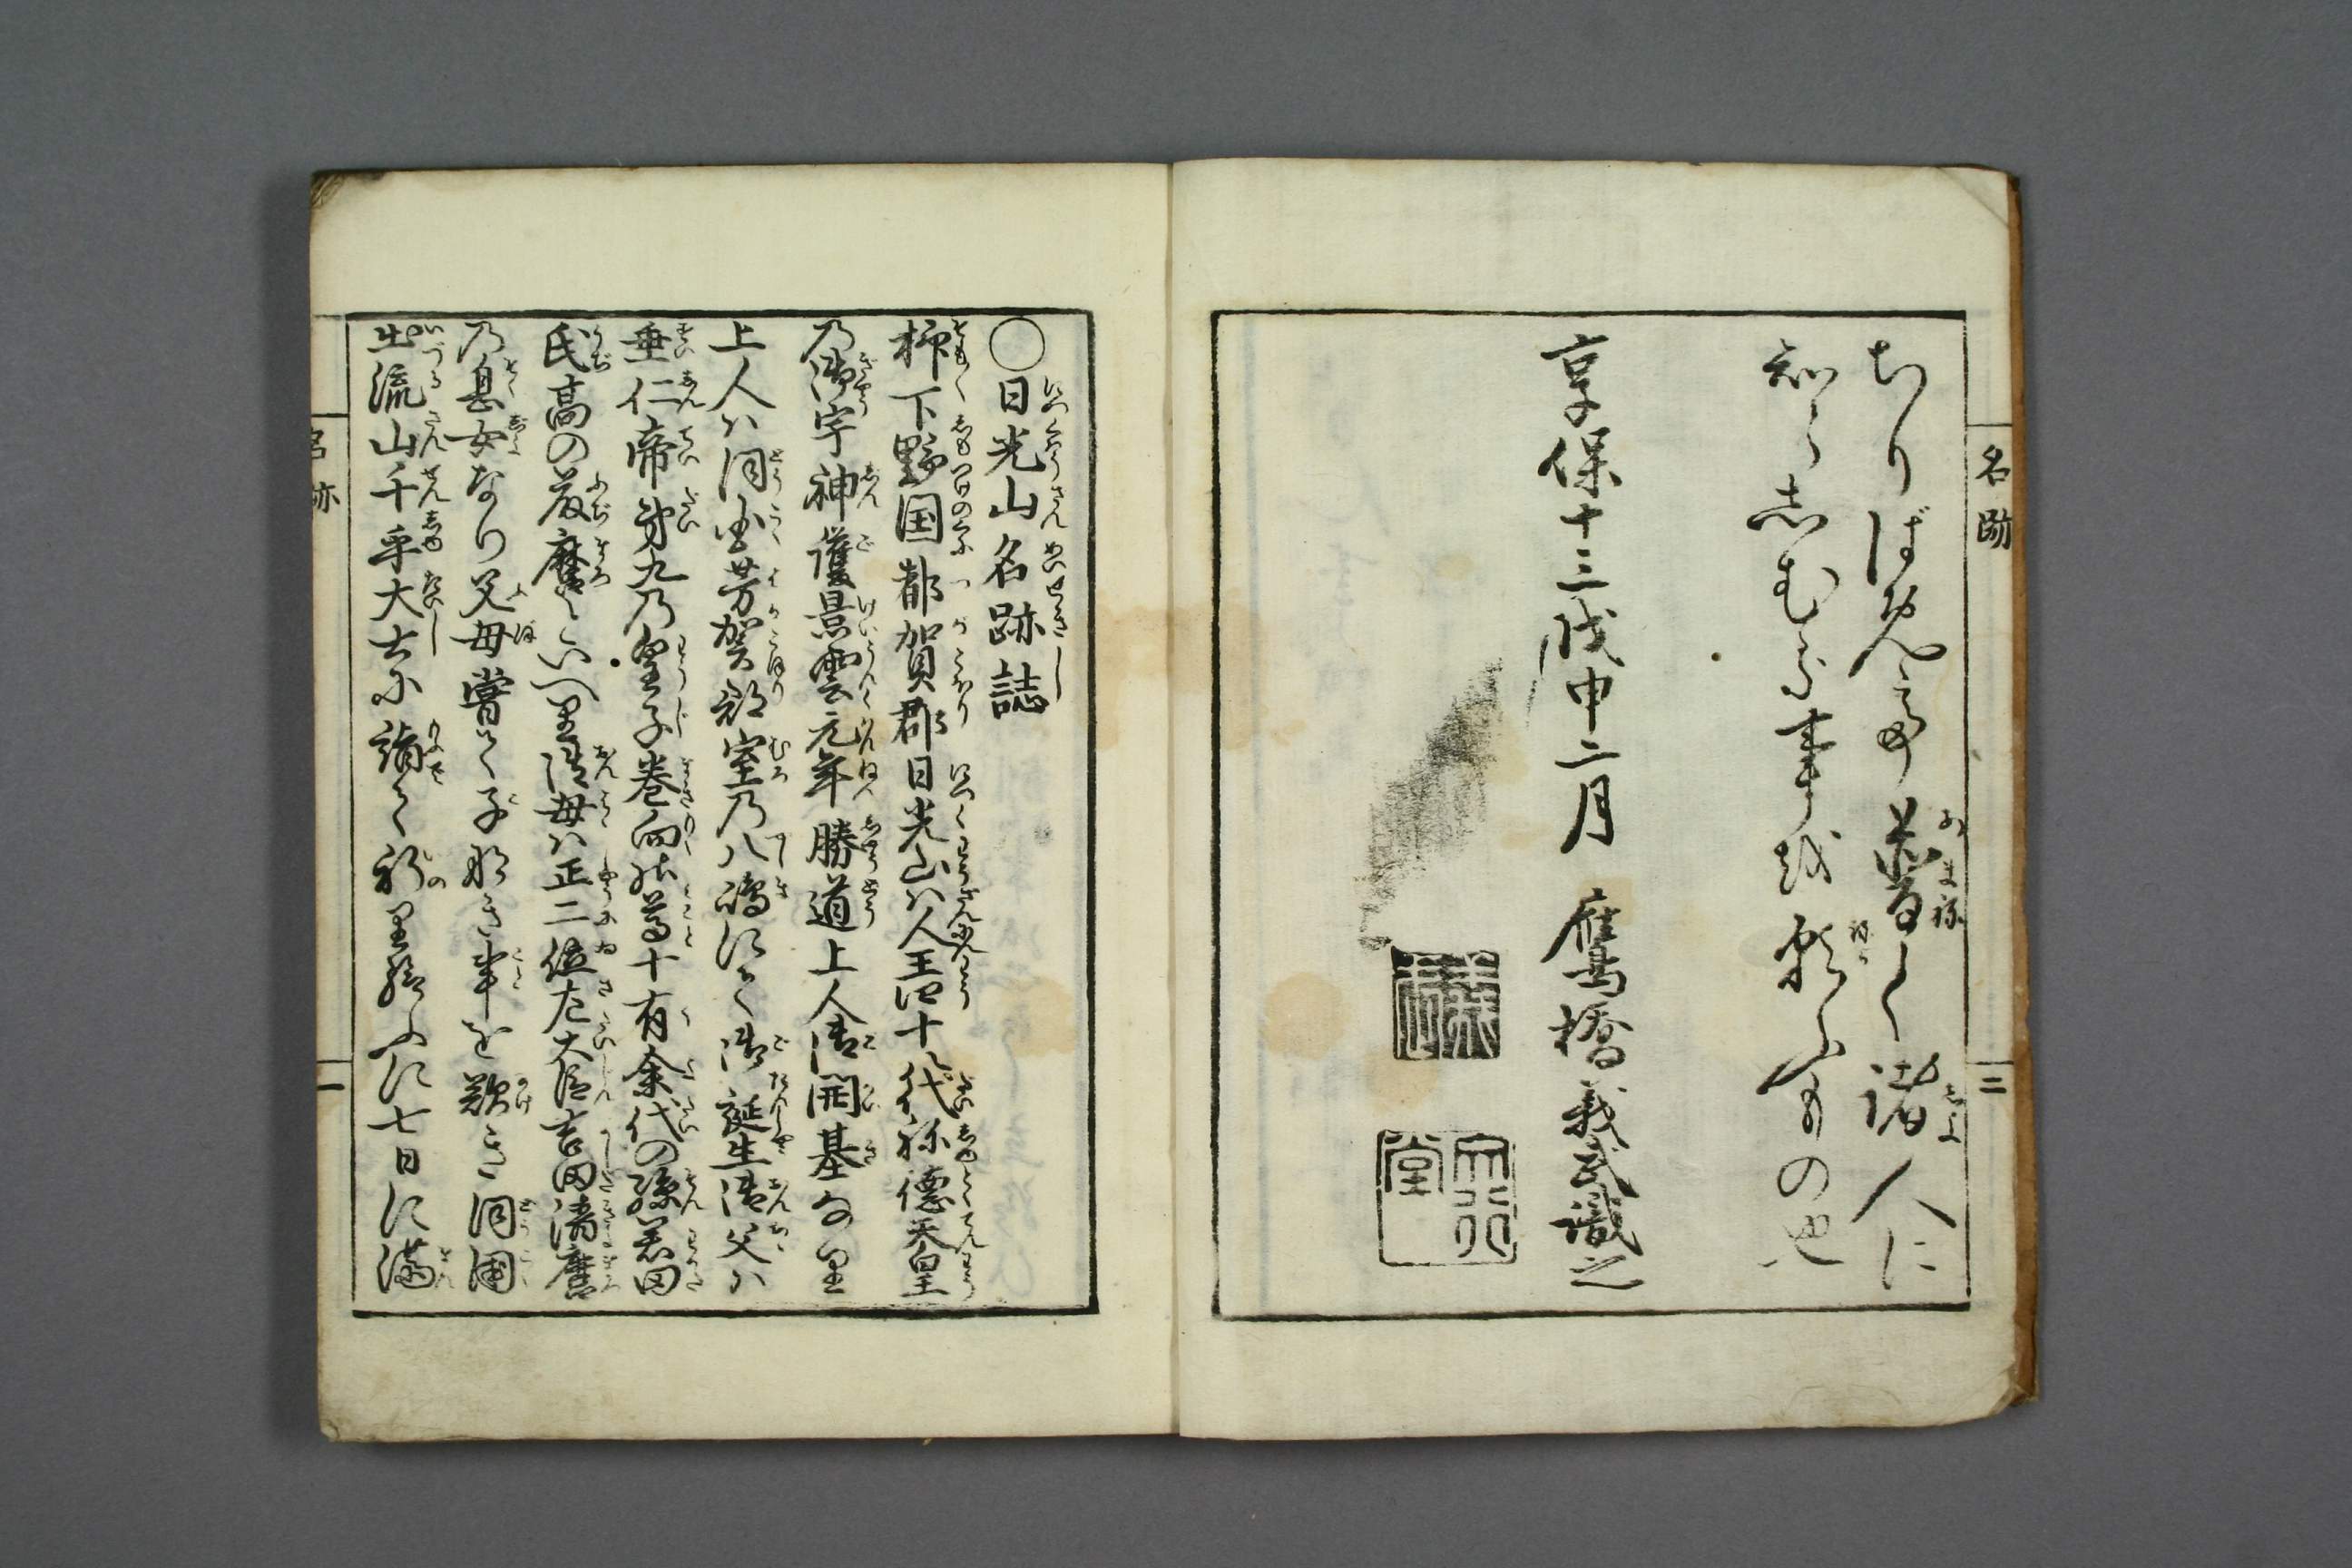 名跡
二
ちりばめて普く諸人に
知らしむる事を願ふもの也
享保十三戊申二月 鷹橋義武識之
堂
〇日光山名跡誌
抑下野国都賀郡日光山ハ人王四十八代称徳天皇
乃御宇神護景雲元年勝道上人御開基なり
上人ハ同国芳賀郡室乃八嶋にて御誕生御父ハ
垂仁帝第九乃皇子巻向尊十有余代の孫若田
氏高の藤麿といへり御母ハ正二位左大臣吉田清麿
乃息女なり父母嘗て子なき事を歎き同国
出流山千手大士に詣て祈り給ふに七日に満
名跡
一